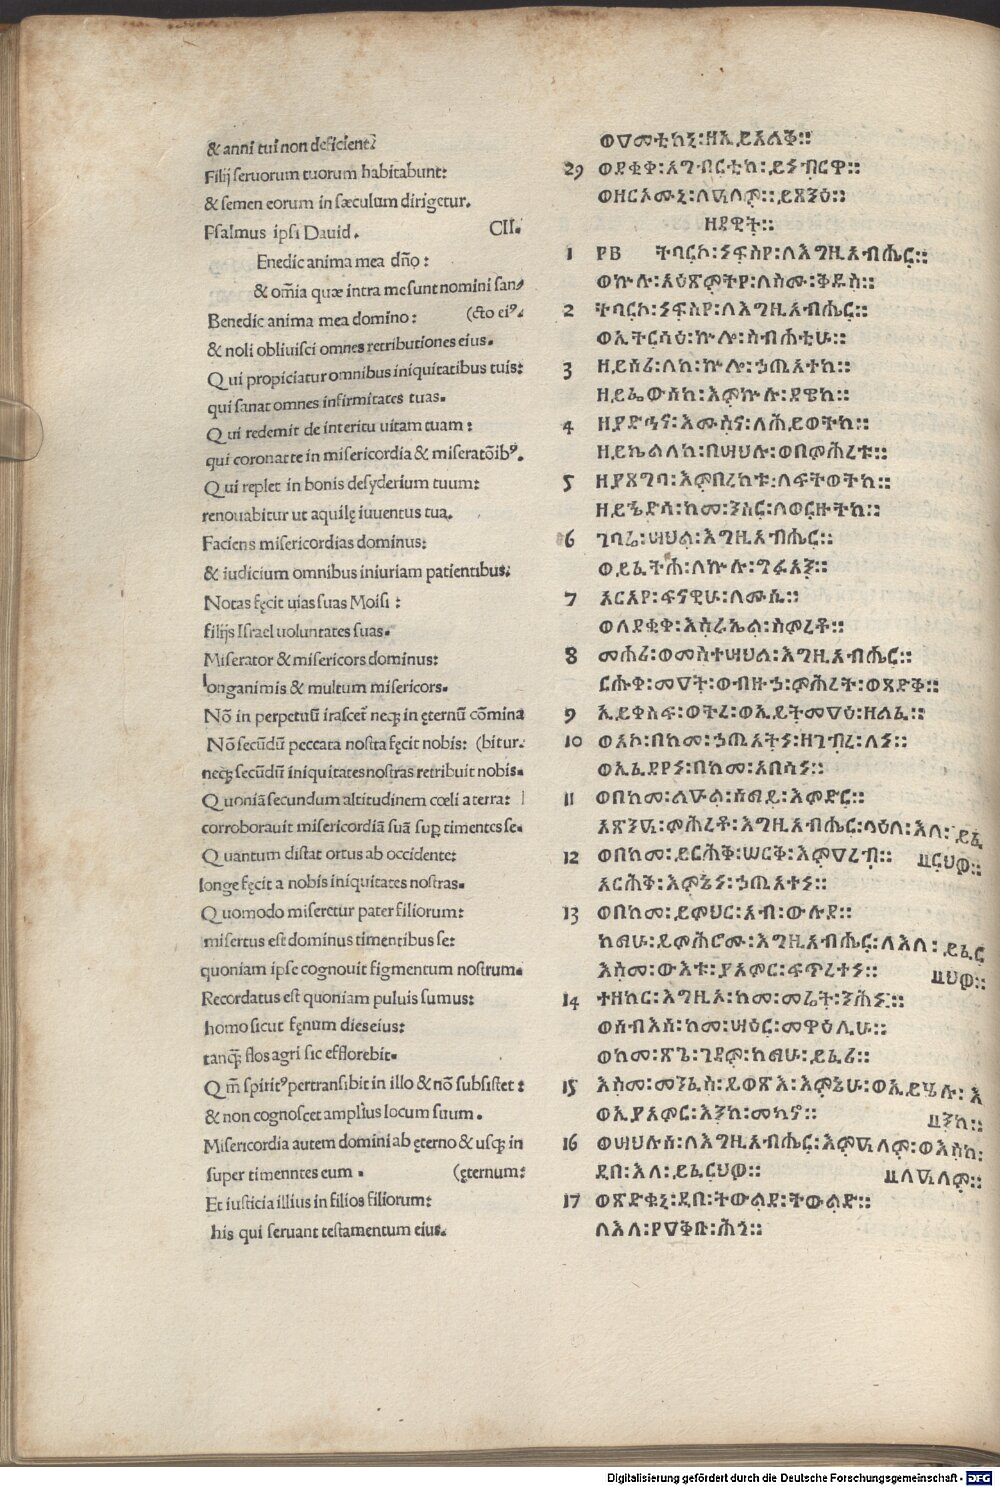 & anni tui non deficient?
Filij seruorum tuorum habitabunt:
& semen eorum in sæculum dirigetur.
Psalmus ipsi Dauid. CII.
Enedic anima mea dño:
& om̃ia quæ intra me sunt nomini san/
Benedic anima mea domino: (cto ei⁹.
& noli obliuisci omnes retributiones eius.
Qui propiciatur omnibus iniquitatibus tuis:
qui sanat omnes infirmitates tuas.
Qui redemit de interitu uitam tuam:
qui coronat te in misericordia & miseratõib⁹.
Qui replet in bonis desyderium tuum:
renouabitur ut aquilę iuuentus tua.
Faciens misericordias dominus:
& iudicium omnibus iniuriam patientibus.
Notas fęcit uias suas Moisi:
filijs Israel uoluntates suas.
Miserator & misericors dominus:
longanimis & multum misericors.
Nõ in perpetuũ irascet̃ neq; in ęternũ cõmina
Nõ secũdũ peccata nostra fęcit nobis: (bitur.
neq; secũdũ iniquitates nostras retribuit nobis.
Quoniã secundum altitudinem cœli a terra:
corroborauit misericordiã suã sup̱ timentes se.
Quantum distat ortus ab occidente:
longe fęcit a nobis iniquitates nostras.
Quomodo miseretur pater filiorum:
misertus est dominus timentibus se:
quoniam ipse cognouit figmentum nostrum.
Recordatus est quoniam puluis sumus:
homo sicut fęnum dies eius:
tanq̃ flos agri sic efflorebit.
Qm̃ spirit⁹ pertransibit in illo & nõ subsistet:
& non cognoscet amplius locum suum.
Misericordia autem domini ab ęterno & usq; in
super timenntes eum. (ęternum:
Et iusticia illius in filios filiorum:
his qui seruant testamentum eius.
ወዓመቲከኒ፡ዘኢይኀልቅ።
29 ወደቂቀ፡አግብርቲከ፡ይነብርዋ።
ወዘርኦሙኒ፡ለዓለም።ይጸንዕ።
ዘዳዊት።
1 ፻፪ ትባርኮ፡ነፍስየ፡ለእግዚአብሔር።
ወኵሉ፡አዕጽምትየ፡ለስሙ፡ቅዱስ።
2 ትባርኮ፡ነፍስየ፡ለእግዚአብሔር።
ወኢትርሳዕ፡ኵሎ፡ስብሐቲሁ።
3 ዘይሰሪ፡ለከ፡ኵሎ፡ኃጢአተከ።
ዘይፌውሰከ፡እምኵሉ፡ደዌከ።
4 ዘያድኅና፡እሙስና፡ለሕይወትከ።
ዘይኬልለከ፡በሣህሉ፡ወበምሕረቱ።
5 ዘያጸግባ፡እምበረከቱ፡ለፍትወትከ።
ዘይሔድሳ፡ከመ፡ንስር፡ለወርዙትከ።
6 ገባሬ፡ሣህል፡እግዚአብሔር።
ወይፈትሕ፡ለኵሉ፡ግፉአን።
7 አርአየ፡ፍናዊሁ፡ለሙሴ።
ወለደቂቀ፡እስራኤል፡ስምረቶ።
8 መሐሪ፡ወመስተሣህል፡እግዚአብሔር።
ርሑቀ፡መዓት፡ወብዙኃ፡ምሕረት፡ወጻድቅ።
9 ኢይቀስፍ፡ወትረ፡ወኢይትመዓዕ፡ዘልፈ።
10 ወአኮ፡በከመ፡ኃጢአትነ፡ዘገብረ፡ለነ።
ወኢፈደየነ፡በከመ፡አበሳነ።
11 ወበከመ፡ልዑል፡ሰማይ፡እምድር።
አጽንዓ፡ምሕረቶ፡እግዚአብሔር፡ላዕለ፡እለ፡ይፈ
12 ወበከመ፡ይርሕቅ፡ሠርቅ፡እምዓረብ። ርህዎ።
አርሐቀ፡እምኔነ፡ኃጢአተነ።
13 ወበከመ፡ይምህር፡አብ፡ውሉደ።
ከማሁ፡ይምሕሮሙ፡እግዚአብሔር፡ለእለ፡ይፈር
እስመ፡ውእቱ፡ያአምር፡ፍጥረተነ። ህዎ።
14 ተዘከር፡እግዚአ፡ከመ፡መሬት፡ንሕነ።
ወሰብእሰ፡ከመ፡ሣዕር፡መዋዕሊሁ።
ወከመ፡ጽጌ፡ገዳም፡ከማሁ፡ይፈሪ።
15 እስመ፡መንፈስ፡ይወጽእ፡እምኔሁ፡ወኢይሄሉ፡እ
ወኢያአምር፡እንከ፡መካኖ። ንከ።
16 ወሣህሉሰ፡ለእግዚአብሔር፡እምዓለም፡ወእስከ፡
ዲበ፡እለ፡ይፈርህዎ። ለዓለም።
17 ወጽድቁኒ፡ዲበ፡ትውልደ፡ትውልድ።
ለእለ፡የዓቅቡ፡ሕጎ።
Digitalisierung gefördert durch die Deutsche Forschungsgemeinschaft - DFG